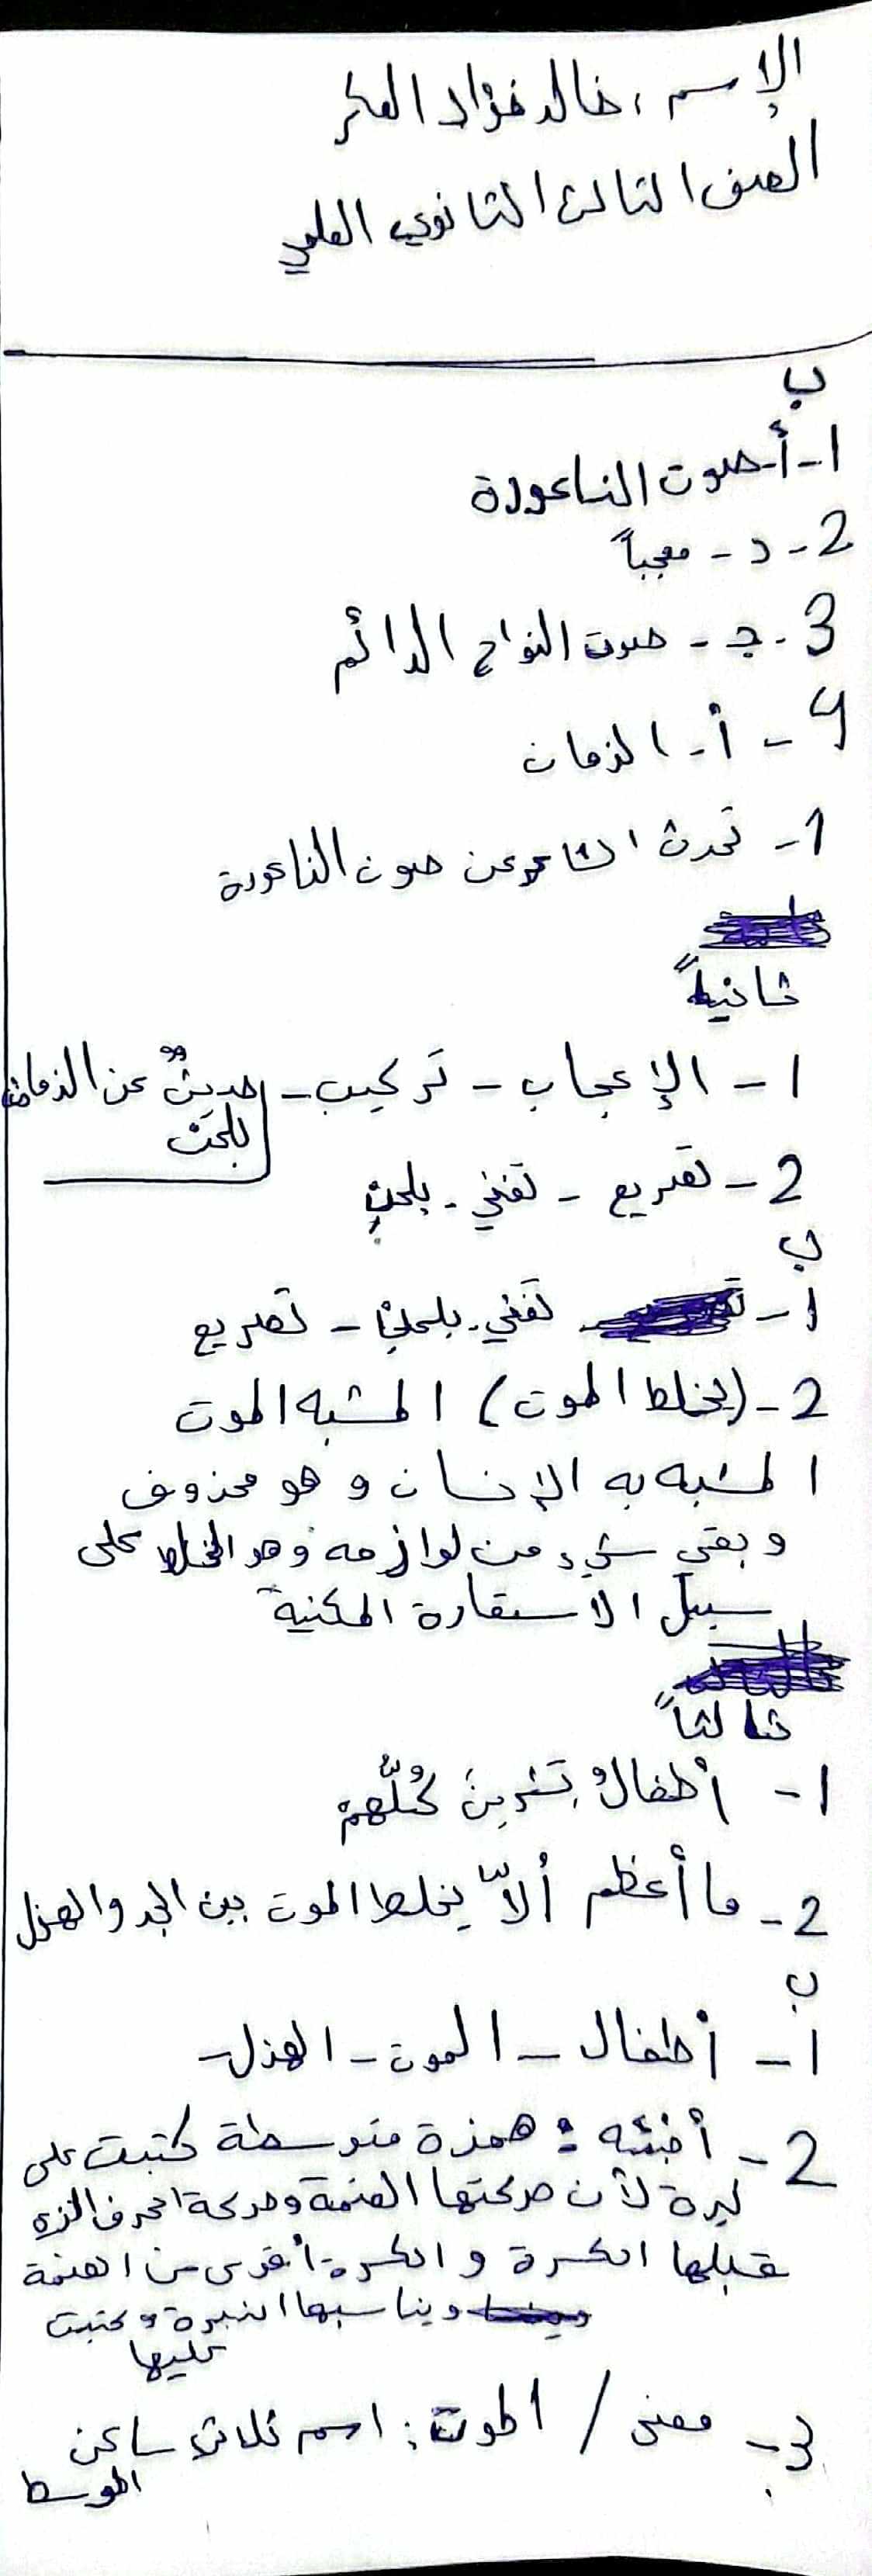 الإسم، خالد فؤاد العكر
الصف الثالث الثانوي العلمي
ب
1-أ-صوت الناعورة
2- د - معجباً
3 - ج - صوت النواح الدائم
4 - أ - الزمان
1- تحدث الشاعر عن صوت الناعورة
ثانياً
1 - الإعجاب - تركيب - حديثٌ عن الزمان
بلحن
2 - تصريع - تغني - بلحنٍ
ب
1 - تغني - بلحنٍ - تصريع
2 - (يخلط الموت) المشبه الموت
المشبه به الإنسان وهو محذوف
وبقي شيء من لوازمه وهو الخلط على
سبيل الاستعارة المكنية
ثالثاً
1 - أطفالُ تشرينَ كُلُّهمْ
2 - ما أعظم ألّا يخلط الموت بين الجد والهزل
ب
1 - أطفال - الموت - الهزل
2 - أنبئه : همزة متوسطة كتبت على
نبرة لأن حركتها الضمة وحركة الحرف الذي
قبلها الكسرة والكسرة أقوى من الضمة
ويناسبها النبرة وكتبت
عليها
3 - معنى / الموت : اسم ثلاثي ساكن
الوسط